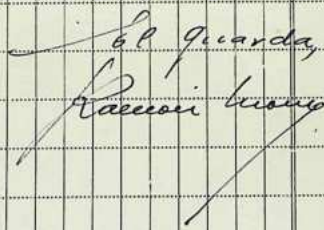 El guarda,
Ramon